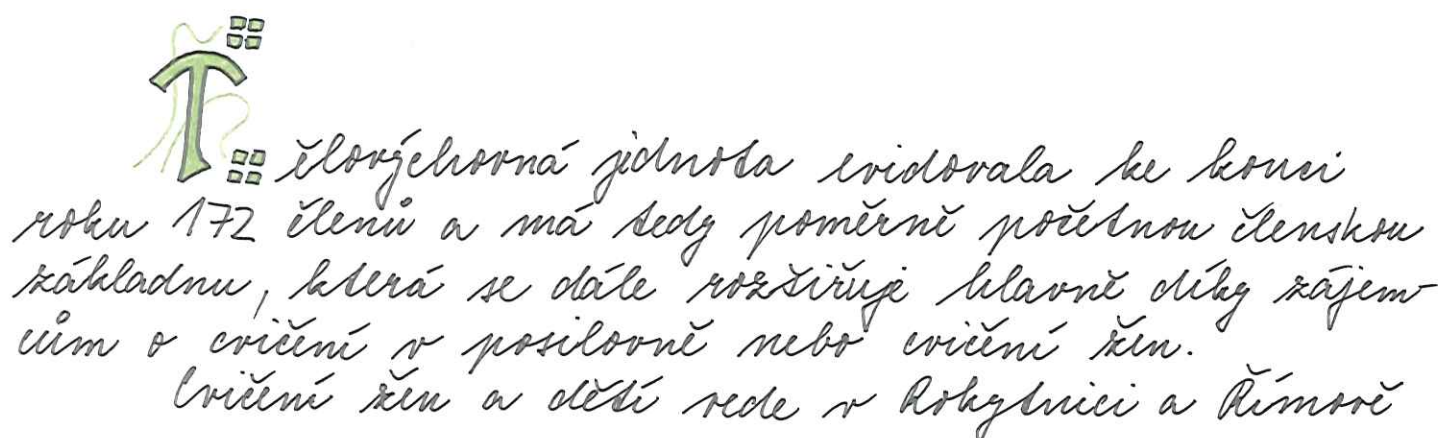 Tělovýchovná jednota evidovala ke konci
roku 172 členů a má tedy poměrně početnou členskou
základnu, která se dále rozšiřuje hlavně díky zájem-
cům o cvičení v posilovně nebo cvičení žen.
Cvičení žen a dětí vede v Rokytnici a Římově